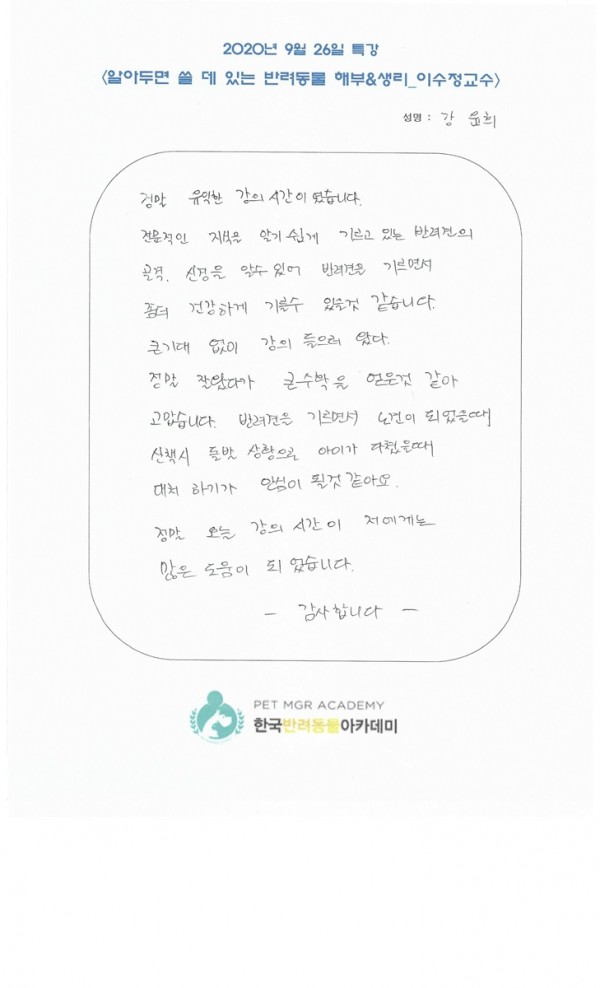 2020년 9월 26일 특강
<알아두면 쓸 데 있는 반려동물 해부&생리_이수정교수>
성명 : 강 윤희
정말 유익한 강의 시간이 였습니다.
전문적인 지식을 알기 쉽게 기르고 있는 반려견의
골격, 신경을 알수 있어 반려견을 기르면서
좀더 건강하게 기를수 있을것 같습니다.
큰기대 없이 강의 들으러 왔다.
정말 잘왔다가 큰수확을 얻은것 같아
고맙습니다. 반려견을 기르면서 노견이 되었을때
산책시 돌발 상황으로 아이가 다쳤을때
대처 하기가 안심이 될것 같아요.
정말 오늘 강의 시간이 저에게는
많은 도움이 되 었습니다.
- 감사합니다 -
PET MGR ACADEMY
한국반려동물아카데미